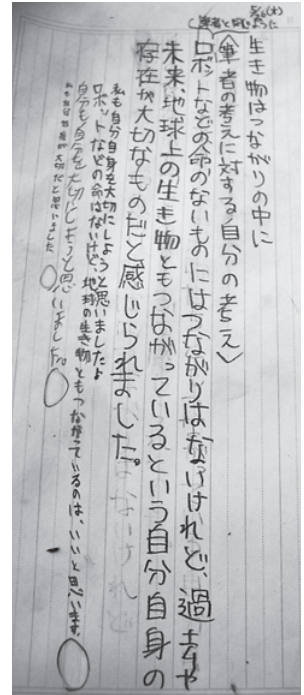 5/26(木)
(筆者と同じように
生き物はつながりの中に
〈筆者の考えに対する自分の考え〉
ロボットなどの命のないものにはつながりはないけれど、過去や
未来、地球上の生き物ともつながっているという自分自身の
存在が大切なものだと感じられました。
私も自分自身を大切にしようと思いましたよ
ロボットなどの命はないけど、地球の生き物ともつながっているのは、いいと思います。
自分も自分を大切にしようと思いました。
自分が大切だと思いました